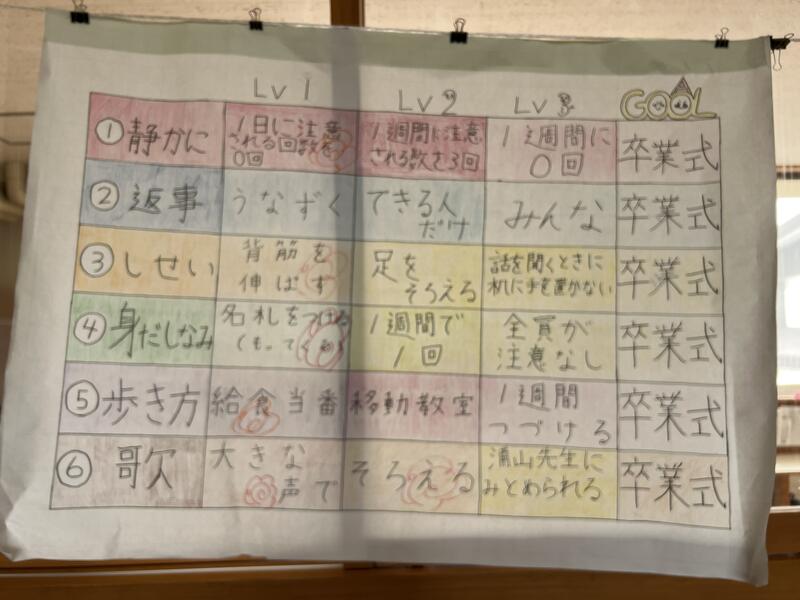 Lv 1 Lv 2 Lv 3 GOOL
① 静かに
1日に注意
される回数を
0回
1週間に注意
される数を3回
1週間に
0回
卒業式
② 返事
うなずく
できる人
だけ
みんな
卒業式
③ しせい
背筋を
伸ばす
足を
そろえる
話を聞くときに
机に手を置かない
卒業式
④ 身だしなみ
名札をつける
(もってくる)
1週間で
1回
全員が
注意なし
卒業式
⑤ 歩き方
給食当番
移動教室
1週間
つづける
卒業式
⑥ 歌
大きな
声で
そろえる
浦山先生に
みとめられる
卒業式